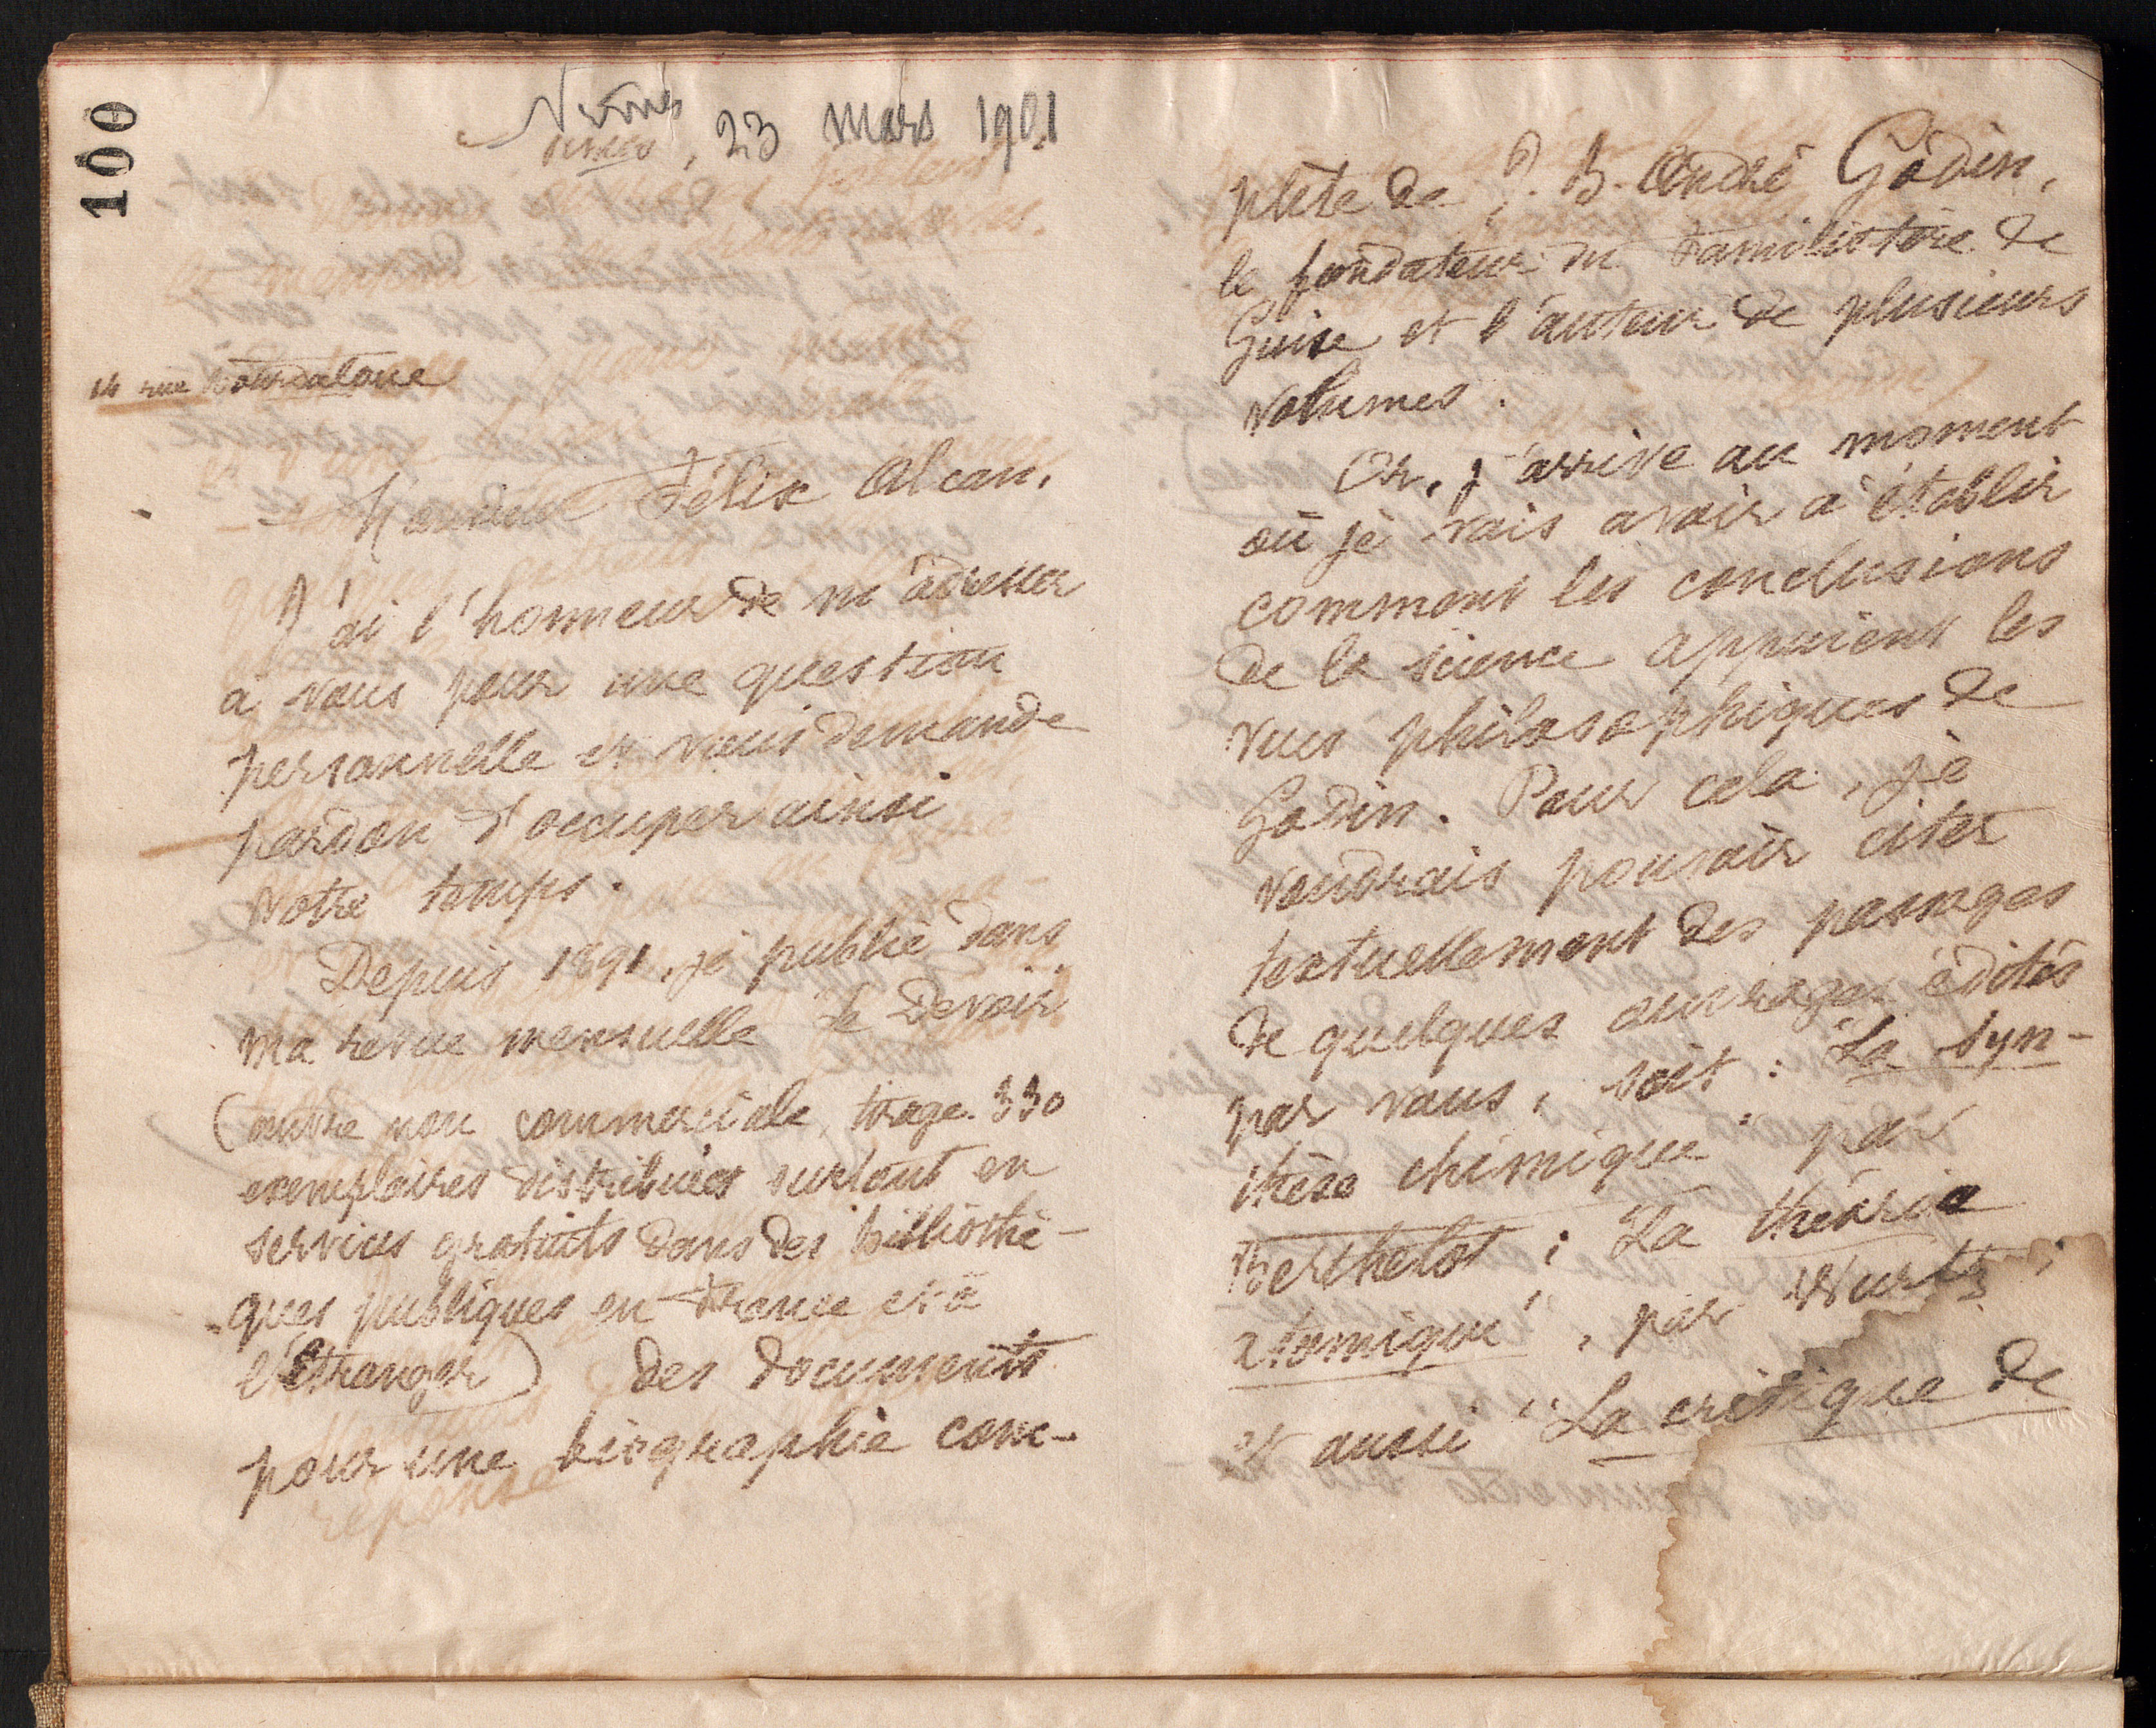 100
Nimes, 23 mars 1901
14 rue Bourdaloue
Monsieur Félix Alcan,
J'ai l'honneur de m'adresser
à vous pour une question
personnelle et vous demande
pardon d'occuper ainsi
votre temps.
Depuis 1891, je publie dans
ma revue mensuelle le Devoir
(œuvre non commerciale, tirage 330
exemplaires distribués surtout en
services gratuits dans des bibliothè-
ques publiques en France et à
l'Etranger) des documents
pour une biographie com-
réponse
plète de J. B. André Godin,
le fondateur du Familistère de
Guise et l'auteur de plusieurs
volumes.
Or, j'arrive au moment
où je vais avoir à établir
comment les conclusions
de la science appuient les
vues philosophiques de
Godin. Pour cela, je
voudrais pouvoir citer
textuellement des passages
de quelques ouvrages édités
par vous, soit : "La syn-
thèse chimique" par
Berthelot ; "La théorie
atomique", par Wurtz ;
et aussi "La critique de